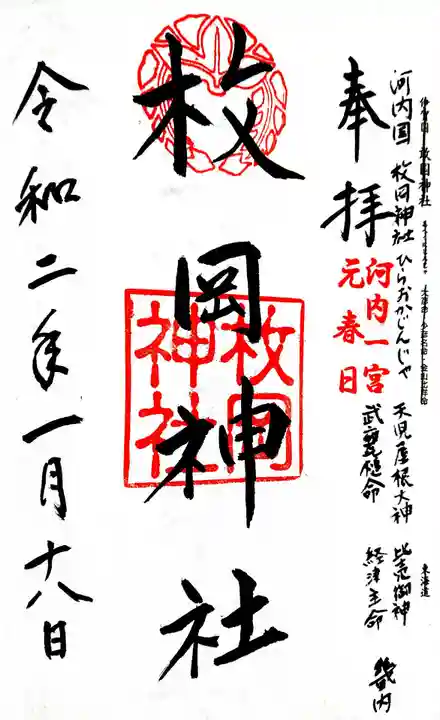 河内国 枚岡神社 ひらおかじんじゃ 天児屋根大神 比売御神 畿内
武甕槌命 経津主命
東海道
奉拝
河内一宮
元春日
枚岡神社
枚岡
神社
令和二年一月十八日